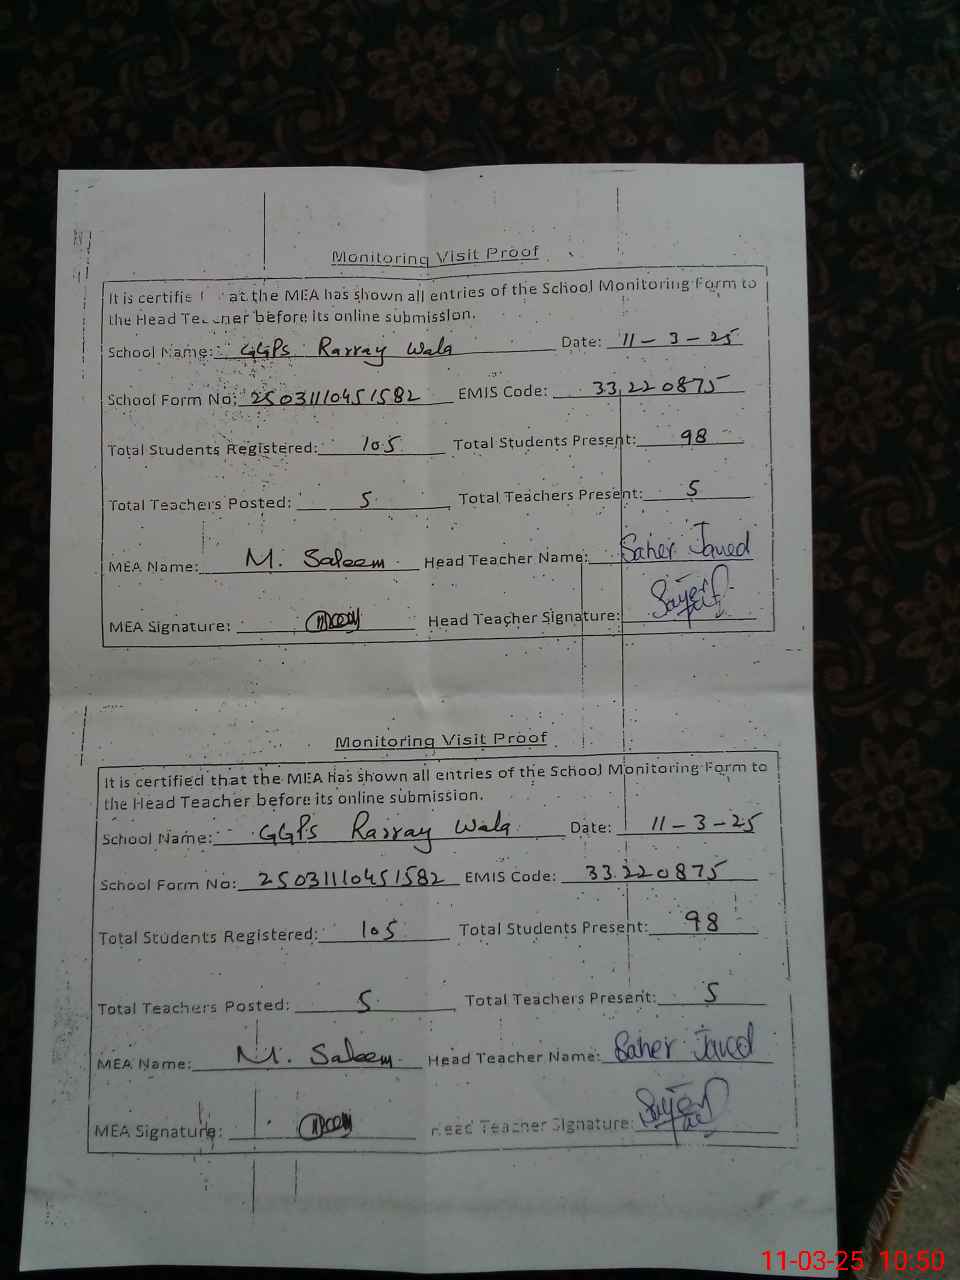 Monitoring Visit Proof
It is certifie at the MEA has shown all entries of the School Monitoring Form to
the Head Te cher before its online submission.
School Name: GGPS Rarray Wala Date: 11-3-25
School Form No: 25031110451582 EMIS Code: 33220875
Total Students Registered: 105 Total Students Present: 98
Total Teachers Posted: 5 Total Teachers Present: 5
MEA Name: M. Saleem Head Teacher Name: Saher Javed
MEA Signature: Head Teacher Signature:
Monitoring Visit Proof
It is certified that the MEA has shown all entries of the School Monitoring Form to
the Head Teacher before its online submission.
School Name: GGPS Rarray Wala Date: 11-3-25
School Form No: 25031110451582 EMIS Code: 33220875
Total Students Registered: 105 Total Students Present: 98
Total Teachers Posted: 5 Total Teachers Present: 5
MEA Name: M. Saleem Head Teacher Name: Saher Javed
MEA Signature: Head Teacher Signature:
11-03-25 10:50